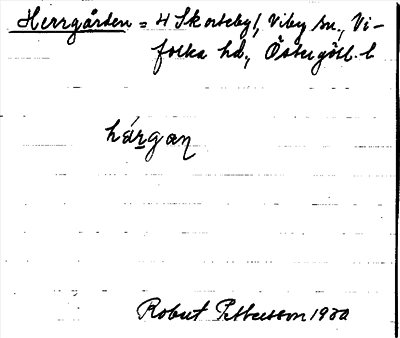 Herrgården = 4 Skorteby 1, Viby sn., Vi-
folka hd., Östergötl. l
hárgan
Robert Pettersson 1930